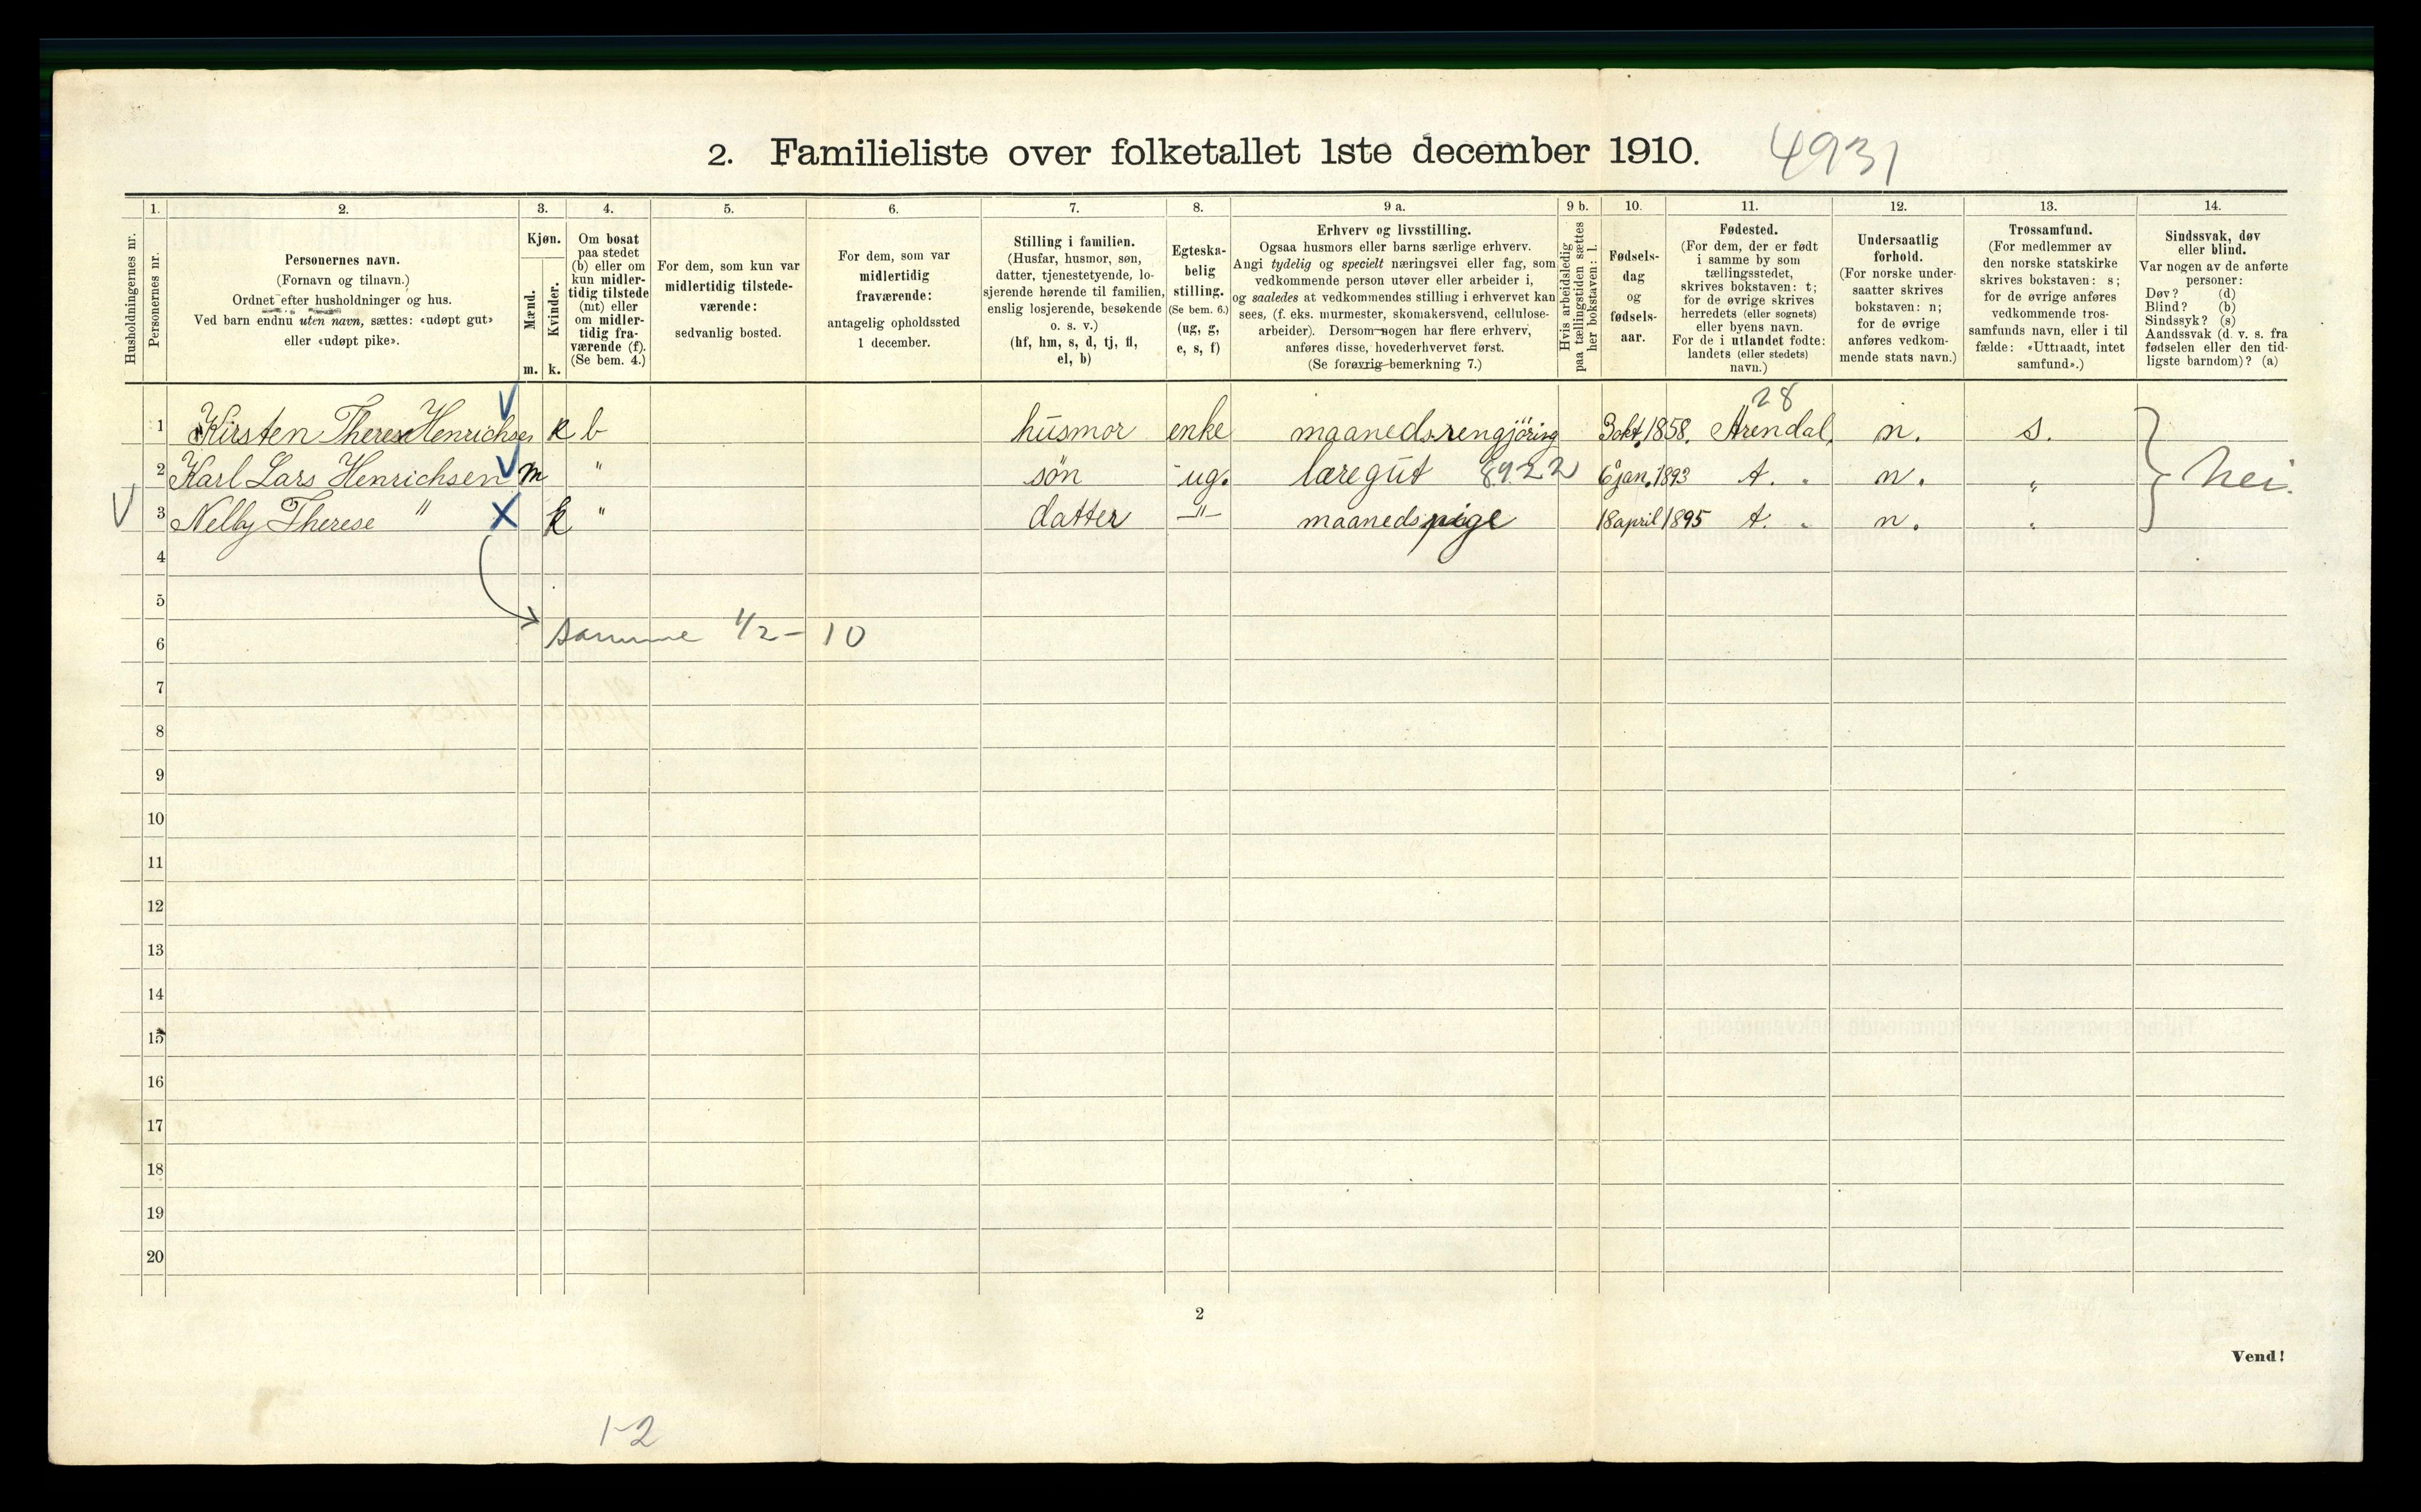 2. Familieliste over folketallet 1ste december 1910. 4931
1. 2. 3. 4. 5. 6. 7. 8. 9 a. 9 b. 10. 11. 12. 13. 14.
Husholdningernes nr.
Personernes nr.
Personernes navn.
(Fornavn og tilnavn.)
Ordnet efter husholdninger og hus.
Ved barn endnu uten navn, sættes: «udøpt gut»
eller «udøpt pike».
Kjøn.
Mænd.
Kvinder.
m. k.
Om bosat
paa stedet
(b) eller om
kun midler-
tidig tilstede
(mt) eller
om midler-
tidig fra-
værende (f).
(Se bem. 4.)
For dem, som kun var
midlertidig tilstede-
værende:
sedvanlig bosted.
For dem, som var
midlertidig
fraværende:
antagelig opholdssted
1 december.
Stilling i familien.
(Husfar, husmor, søn,
datter, tjenestetyende, lo-
sjerende hørende til familien,
enslig losjerende, besøkende
o. s. v.)
(hf, hm, s, d, tj, fl,
el, b)
Egteska-
belig
stilling.
(Se bem. 6.)
(ug, g,
e, s, f)
Erhverv og livsstilling.
Ogsaa husmors eller barns særlige erhverv.
Angi tydelig og specielt næringsvei eller fag, som
vedkommende person utøver eller arbeider i,
og saaledes at vedkommendes stilling i erhvervet kan
sees, (f. eks. murmester, skomakersvend, cellulose-
arbeider). Dersom nogen har flere erhverv,
anføres disse, hovederhvervet først.
(Se forøvrig bemerkning 7.)
Hvis arbeidsledig
paa tællingstiden sættes
her bokstaven: l.
Fødsels-
dag
og
fødsels-
aar.
Fødested.
(For dem, der er født
i samme by som
tællingsstedet,
skrives bokstaven: t;
for de øvrige skrives
herredets (eller sognets)
eller byens navn.
For de i utlandet fødte:
landets (eller stedets)
navn.)
Undersaatlig
forhold.
(For norske under-
saatter skrives
bokstaven: n;
for de øvrige
anføres vedkom-
mende stats navn.)
Trossamfund.
(For medlemmer av
den norske statskirke
skrives bokstaven: s;
for de øvrige anføres
vedkommende tros-
samfunds navn, eller i til
fælde: «Uttraadt, intet
samfund».)
Sindssvak, døv
eller blind.
Var nogen av de anførte
personer:
Døv? (d)
Blind? (b)
Sindssyk? (s)
Aandssvak (d. v. s. fra
fødselen eller den tid-
ligste barndom)? (a)
28
1 Kirsten Therese Henrichsen k b husmor enke maanedsrengjöring 3 okt. 1858. Arendal. n. s.
2 Karl Lars Henrichsen m " søn ug. læregut 8922 6 jan. 1893 t. n. "
nei.
3 Nelly Therese " k " datter —"— maanedspige 18 april 1895 t. n. "
4
5
6 samme 1/2 - 10
7
8
9
10
11
12
13
14
15
16
17
18
19
20
2
Vend!
1-2